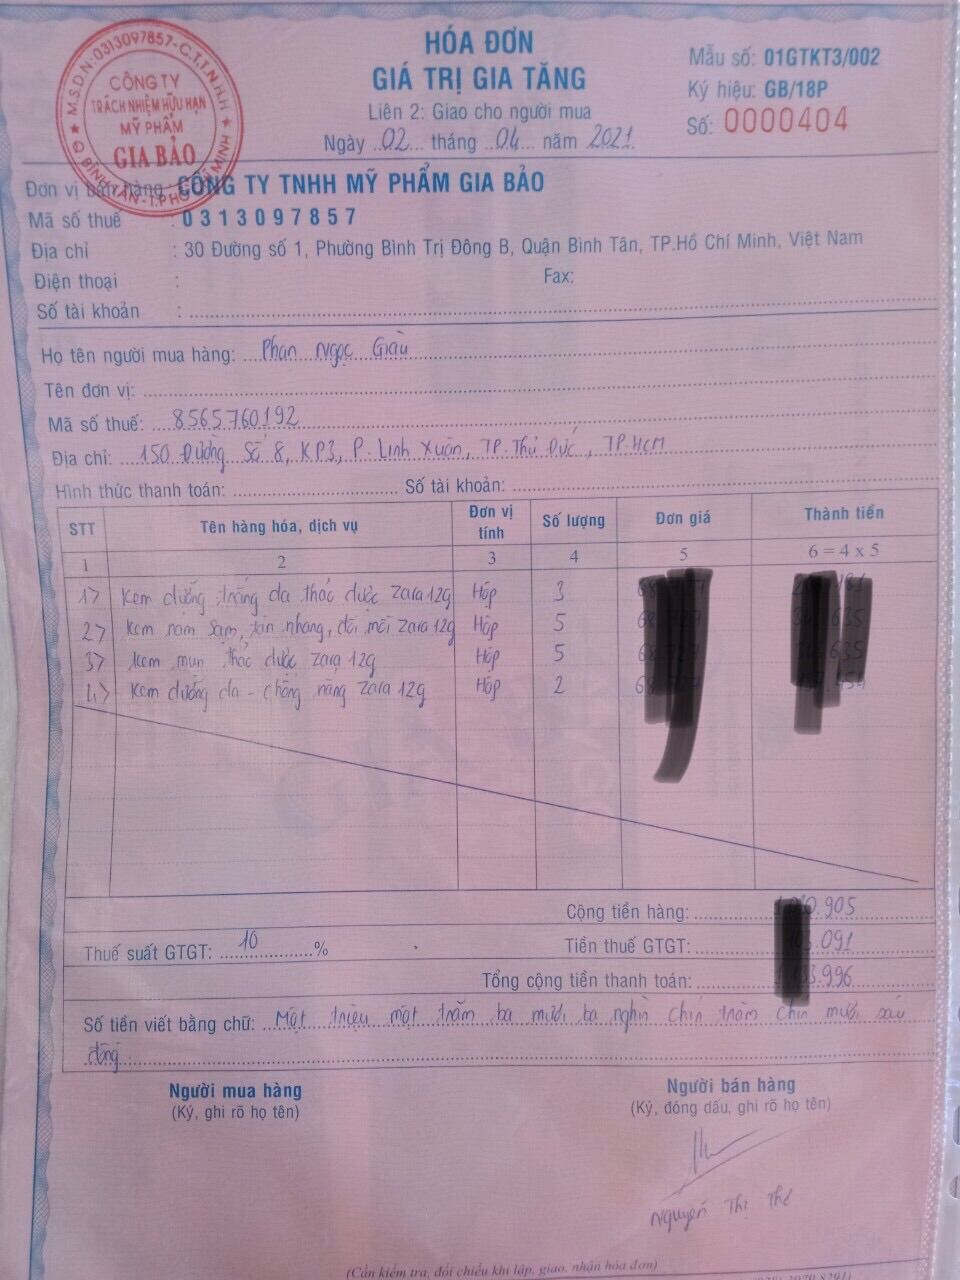 M.S.D.N:0313097857-C.T.T.N.H.H
CÔNG TY
TRÁCH NHIỆM HỮU HẠN
MỸ PHẨM
GIA BẢO
Q.BÌNH TÂN-T.PHỐ HỒ CHÍ MINH
HÓA ĐƠN
GIÁ TRỊ GIA TĂNG
Liên 2: Giao cho người mua
Ngày 02 tháng 04 năm 2021
Mẫu số: 01GTKT3/002
Ký hiệu: GB/18P
Số: 0000404
Đơn vị bán hàng: CÔNG TY TNHH MỸ PHẨM GIA BẢO
Mã số thuế : 0313097857
Địa chỉ : 30 Đường số 1, Phường Bình Trị Đông B, Quận Bình Tân, TP.Hồ Chí Minh, Việt Nam
Điện thoại : Fax:
Số tài khoản :
Họ tên người mua hàng: Phan Ngọc Giàu
Tên đơn vị:
Mã số thuế: 8565760192
Địa chỉ: 150 Đường Số 8, KP3, P. Linh Xuân, TP. Thủ Đức, TP.HCM
Hình thức thanh toán: Số tài khoản:
STT Tên hàng hóa, dịch vụ Đơn vị tính Số lượng Đơn giá Thành tiền
1 2 3 4 5 6 = 4 x 5
1> Kem dưỡng trắng da thảo dược Zara 12g Hộp 3
2> Kem nám sạm, tàn nhang, đồi mồi Zara 12g Hộp 5 635
3> Kem mụn thảo dược Zara 12g Hộp 5 635
4> Kem dưỡng da - chống nắng Zara 12g Hộp 2
Cộng tiền hàng: 905
Thuế suất GTGT: 10 % Tiền thuế GTGT: .091
Tổng cộng tiền thanh toán: 3.996
Số tiền viết bằng chữ: Một triệu một trăm ba mươi ba nghìn chín trăm chín mươi sáu
đồng
Người mua hàng
(Ký, ghi rõ họ tên)
Người bán hàng
(Ký, đóng dấu, ghi rõ họ tên)
Nguyễn Thị Thê
(Cần kiểm tra, đối chiếu khi lập, giao, nhận hóa đơn)